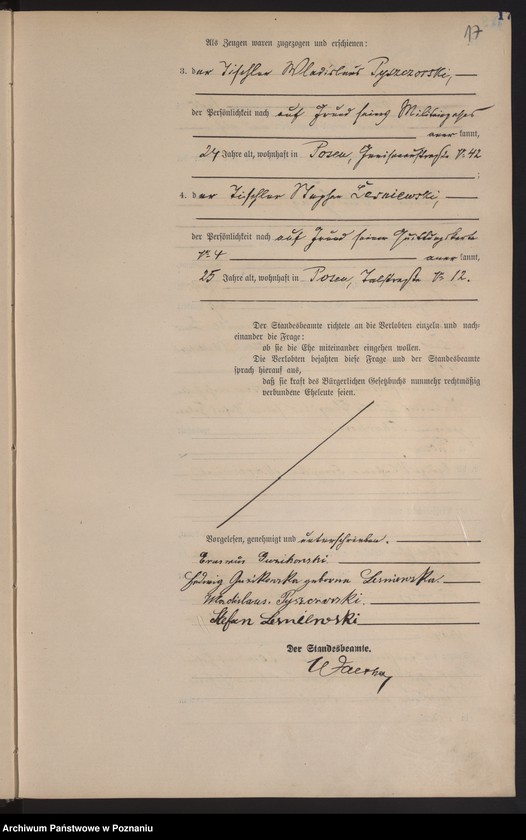 17
Als Zeugen waren zugezogen und erschienen:
3. der Tischler Wladislaus Tyszczorski,
der Persönlichkeit nach auf Grund seines Militairpasses
anerkannt,
24 Jahre alt, wohnhaft in Posen, Gneisenaustraße № 42
;
4. der Tischler Stephan Lesniewski,
der Persönlichkeit nach auf Grund seiner Quittungskarte
№ 4 anerkannt,
25 Jahre alt, wohnhaft in Posen, Talstraße № 12.
Der Standesbeamte richtete an die Verlobten einzeln und nach-
einander die Frage:
ob sie die Ehe miteinander eingehen wollen.
Die Verlobten bejahten diese Frage und der Standesbeamte
sprach hierauf aus,
daß sie kraft des Bürgerlichen Gesetzbuchs nunmehr rechtmäßig
verbundene Eheleute seien.
Vorgelesen, genehmigt und unterschrieben.
Erasmus Guzikowski.
Hedwig Guzikowska geborene Lesniewska.
Wladislaus Tyszczorski
Stefan Leśniewski
Der Standesbeamte.
Archiwum Państwowe w Poznaniu